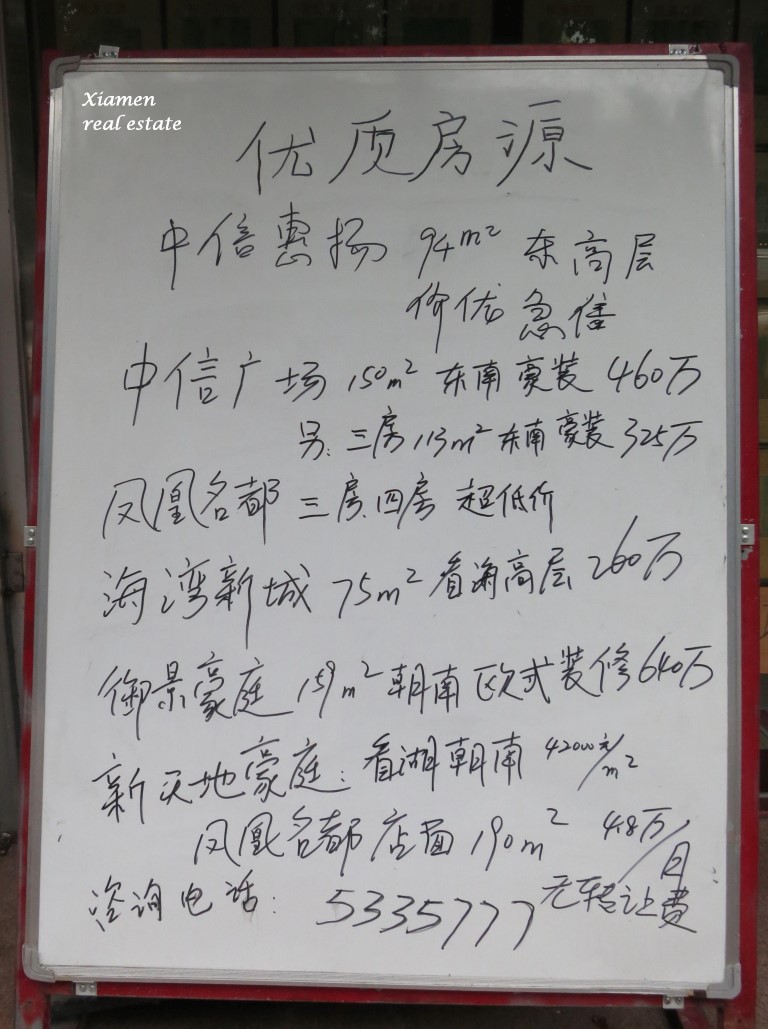 Xiamen
real estate
优质房源
中信惠扬 94m² 东高层
价优急售
中信广场 150m² 东南豪装 460万
另: 三房 113m² 东南豪装 325万
凤凰名都 三房.四房 超低价
海湾新城 75m² 看海高层 260万
御景豪庭 159m² 朝南 欧式装修 640万
新天地豪庭: 看湖朝南 42000元/m²
凤凰名都店面 190m² 4.8万/月
无转让费
咨询电话: 5335777